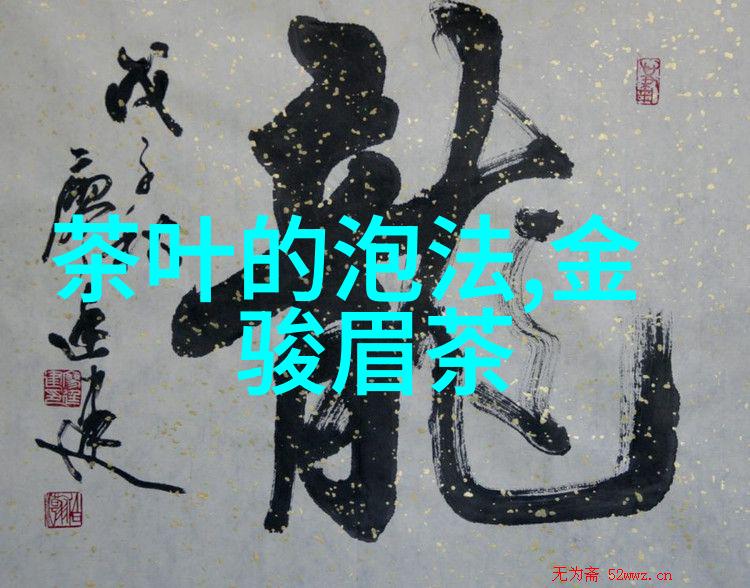 茶叶的泡法,金
骏眉茶
龍
戊子秋
无为斋 52wwz.cn